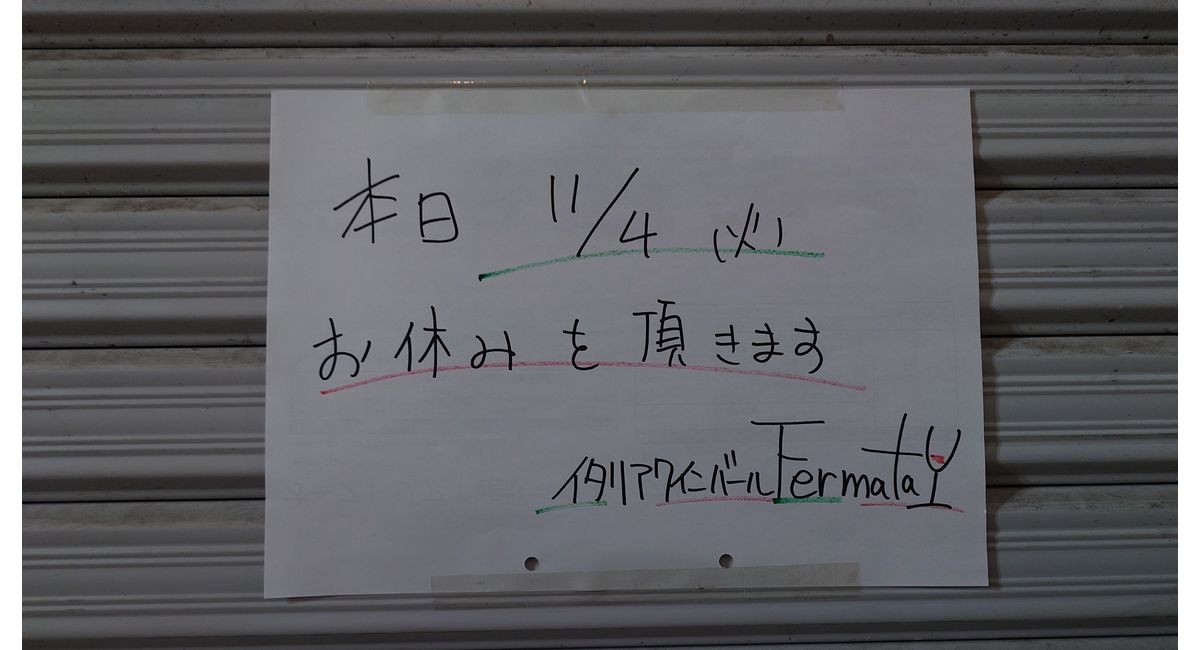 本日 11/4 (火)
お休みを頂きます
イタリアワインバール Fermata